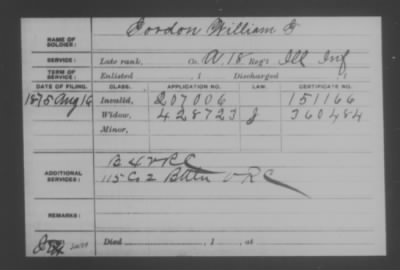 NAME OF SOLDIER: Gordon William F
SERVICE: Late rank, Co. A, 18 Reg't Ill Inf
TERM OF SERVICE: Enlisted , 1 Discharged , 1
DATE OF FILING. CLASS. APPLICATION NO. LAW. CERTIFICATE NO.
1875 Aug 16 Invalid, 207006 151166
Widow, 428723 J 360484
Minor,
ADDITIONAL SERVICES: B 4 VRC
115 Co 2 Battn V R C
REMARKS:
Died , 1 , at